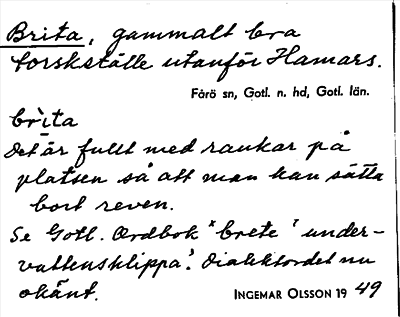 Brita, gammalt bra
torskställe utanför Hamars.
Fårö sn, Gotl. n. hd, Gotl. län.
brita
Det är fullt med raukar på
platsen så att man kan sätta
bort reven.
Se Gotl. Ordbok *brete 'under-
vattensklippa'. Dialektordet nu
okänt.
INGEMAR OLSSON 1949